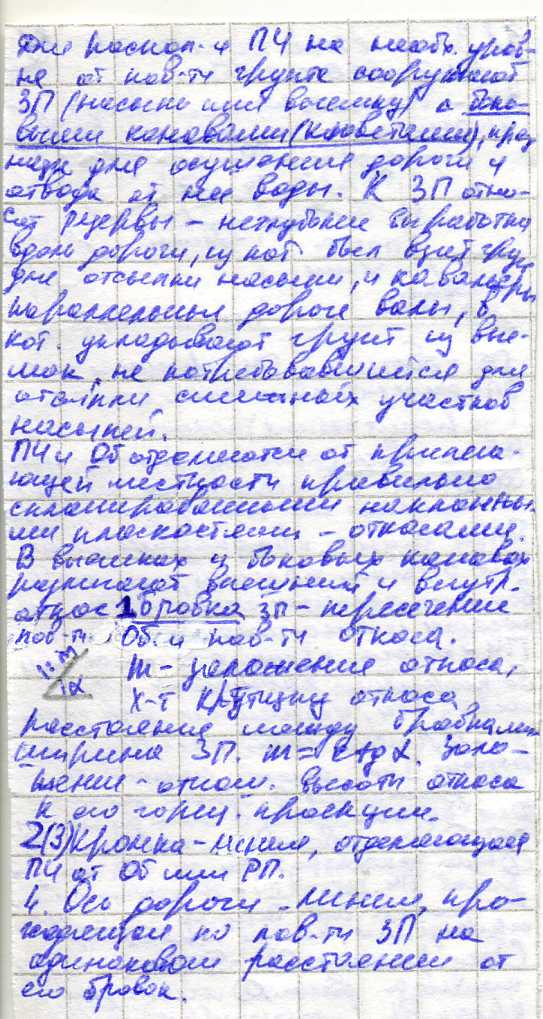 Для распол-я ПЧ на необх. уров-
не от пов-ти грунта сооружают
ЗП (насыпь или выемку) с боко-
выми канавами (кюветами), пред
назн для осушения дороги и
отвода от нее воды. К ЗП отно-
сят резервы – неглубокие выработки
вдоль дороги, из кот был взят грунт
для отсыпки насыпи, и кавальеры
параллельные дороге валы, в
кот. укладывают грунт из вые-
мок, не потребовавшийся для
отсыпки смежных участков
насыпей.
ПЧ и Об отделяются от прилега-
ющей местности правильно
спланированными наклонны
ми плоскостями – откосами.
В выемках и боковых канавах
различают внешний и внутр.
откос 1 бровка ЗП – пересечение
пов-ти Об и пов-ти откоса.
1:m m – заложение откоса,
α х-т крутизну откоса
расстояние между бровками
ширина ЗП. m = ctg α. Зало-
жение – отнош. высоты откоса
к его гориз. проекции.
2(3) Кромка – линия, отделяющая
ПЧ от Об или РП.
4. Ось дороги – линия, про-
ходящая по пов-ти ЗП на
одинаковом расстоянии от
его бровок.